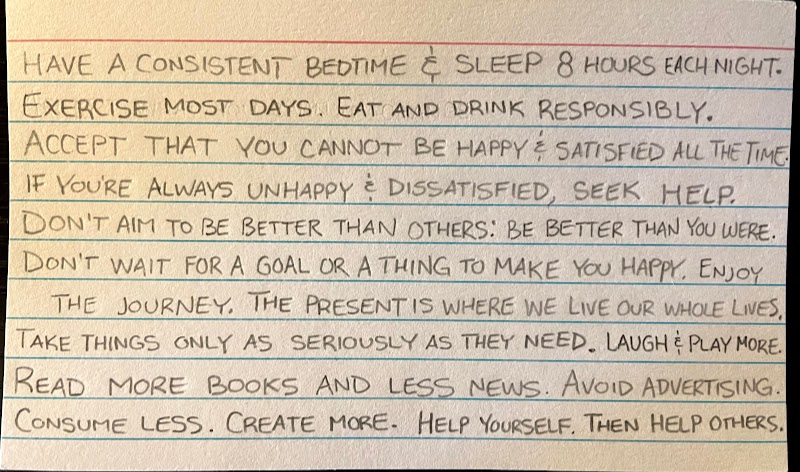 HAVE A CONSISTENT BEDTIME & SLEEP 8 HOURS EACH NIGHT.
EXERCISE MOST DAYS. EAT AND DRINK RESPONSIBLY.
ACCEPT THAT YOU CANNOT BE HAPPY & SATISFIED ALL THE TIME.
IF YOU'RE ALWAYS UNHAPPY & DISSATISFIED, SEEK HELP.
DON'T AIM TO BE BETTER THAN OTHERS: BE BETTER THAN YOU WERE.
DON'T WAIT FOR A GOAL OR A THING TO MAKE YOU HAPPY. ENJOY
THE JOURNEY. THE PRESENT IS WHERE WE LIVE OUR WHOLE LIVES.
TAKE THINGS ONLY AS SERIOUSLY AS THEY NEED. LAUGH & PLAY MORE.
READ MORE BOOKS AND LESS NEWS. AVOID ADVERTISING.
CONSUME LESS. CREATE MORE. HELP YOURSELF. THEN HELP OTHERS.